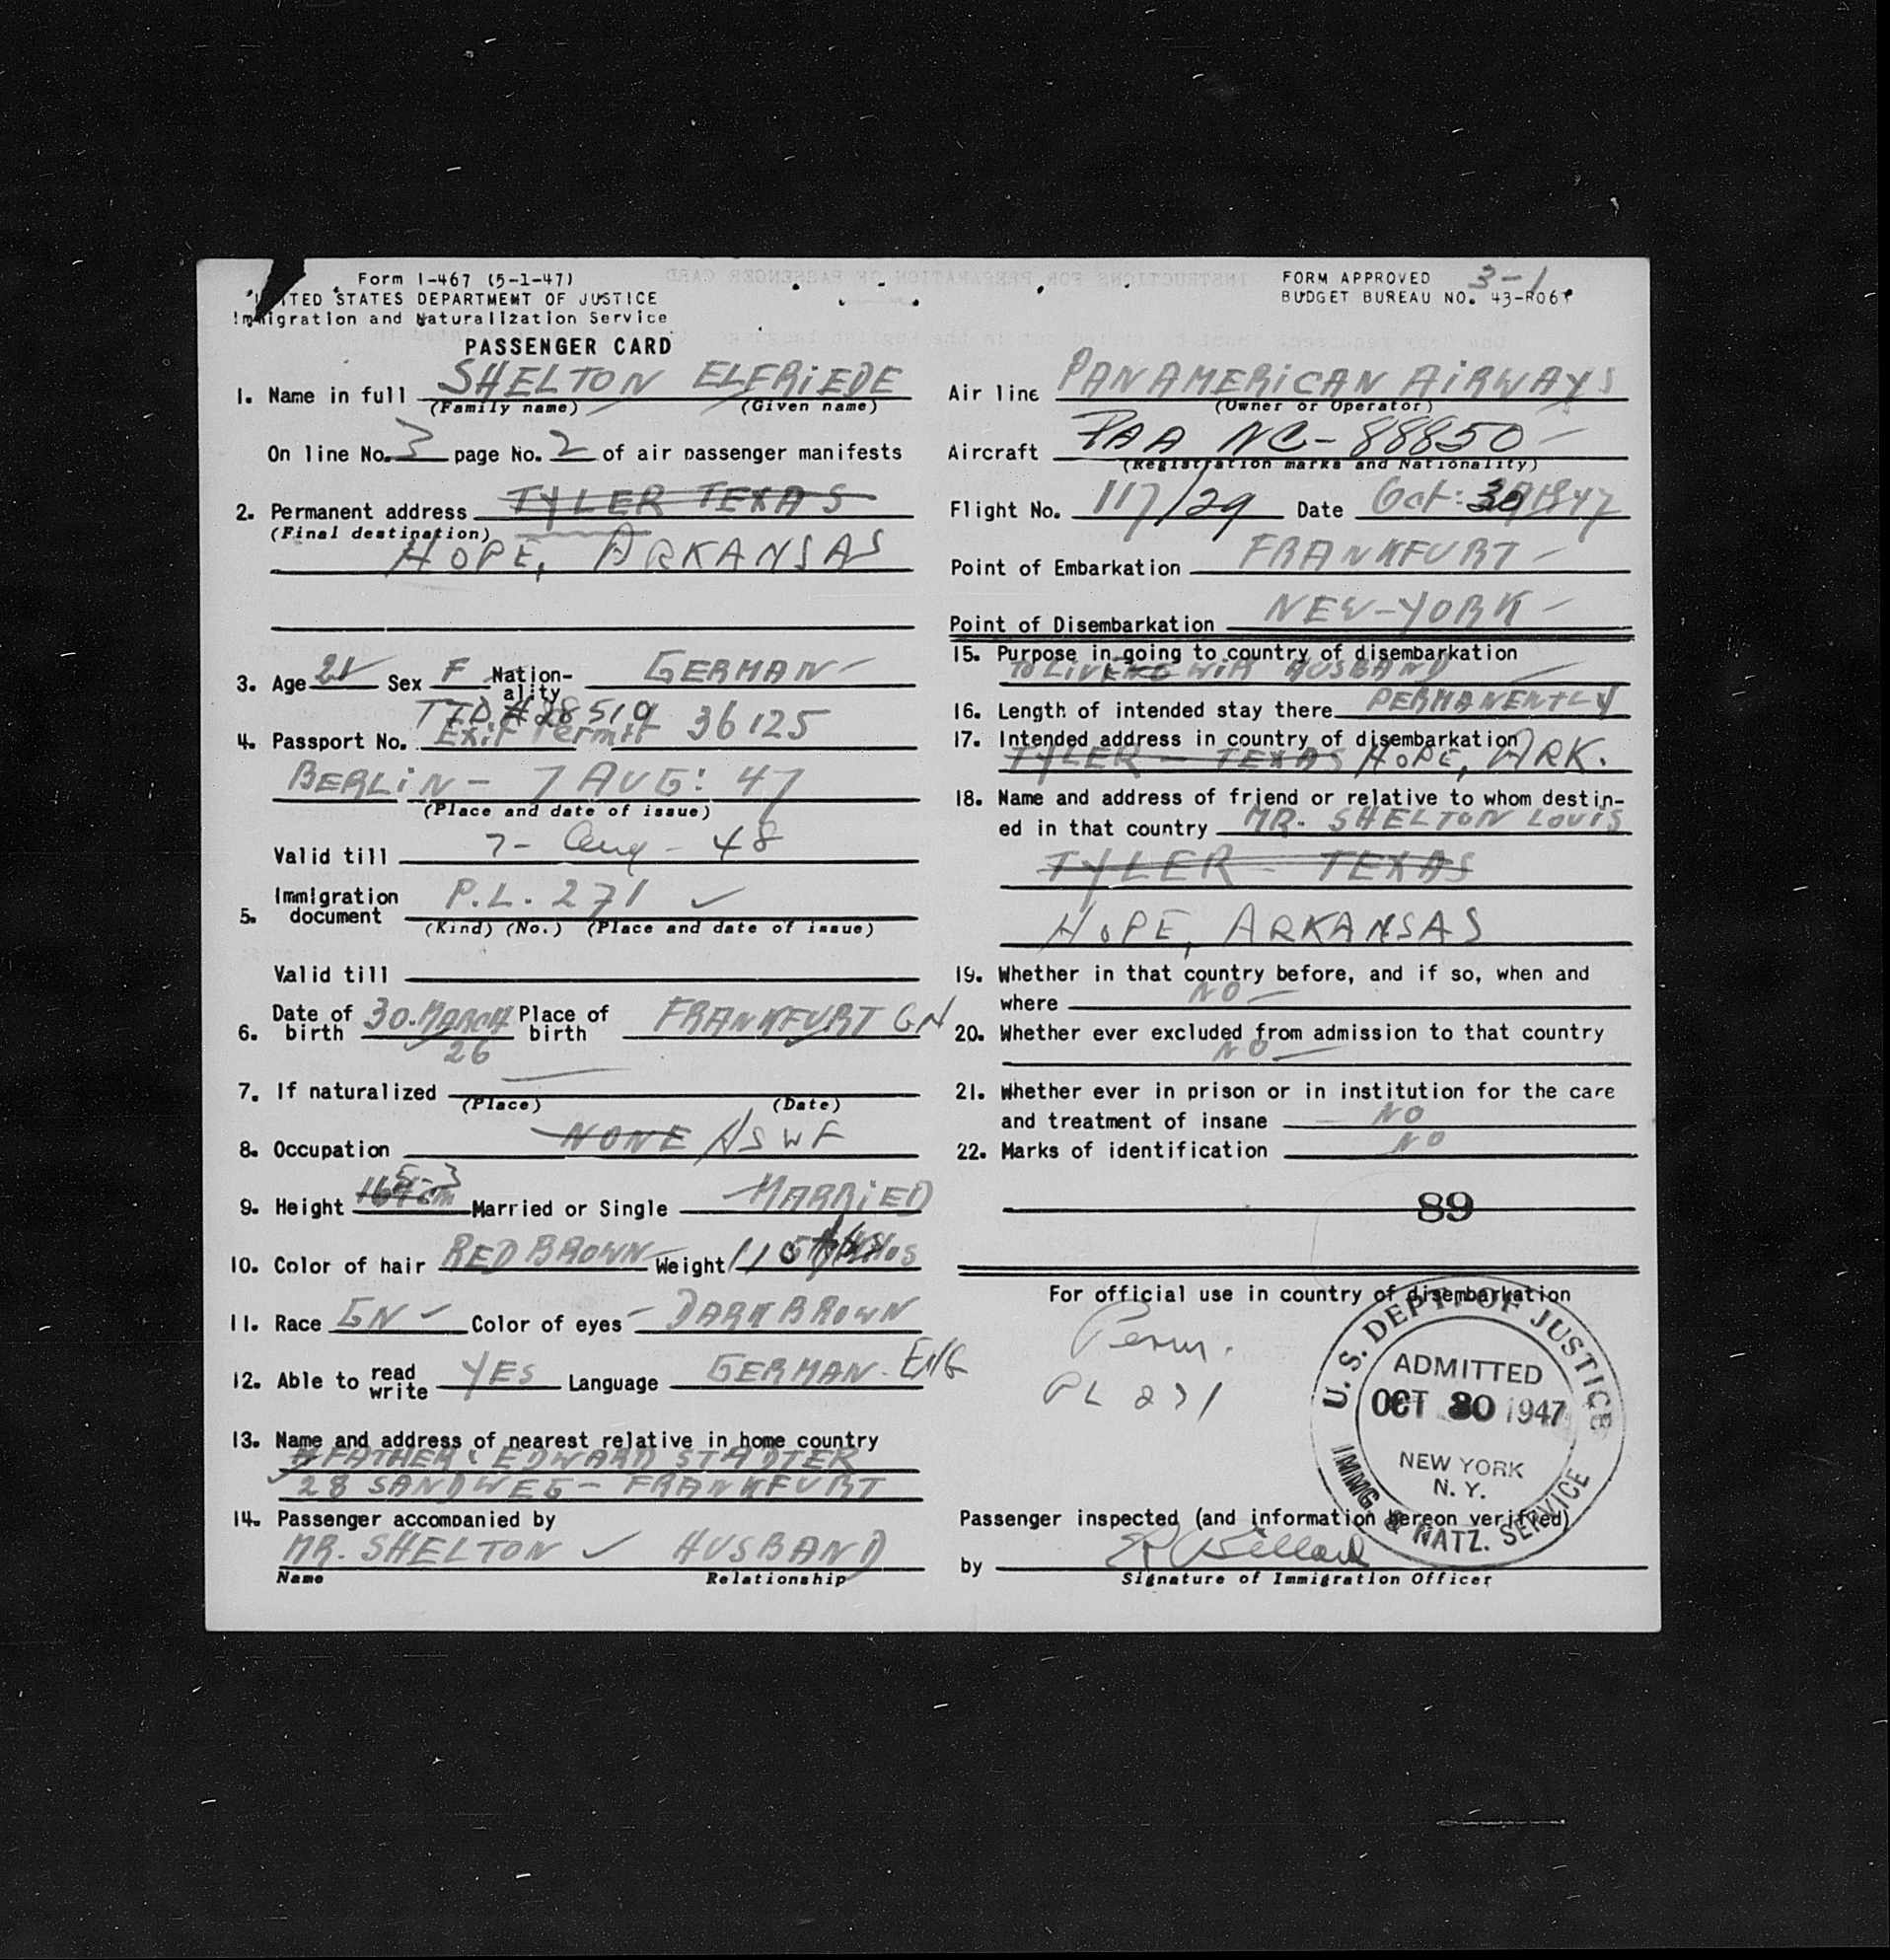 Form I-467 (5-1-47)
UNITED STATES DEPARTMENT OF JUSTICE
Immigration and Naturalization Service
PASSENGER CARD
1. Name in full SHELTON ELFRIEDE
(Family name) (Given name)
On line No. 3 page No. 2 of air passenger manifests
2. Permanent address TYLER TEXAS
(Final destination)
HOPE, ARKANSAS
3. Age 21 Sex F Nation-
ality GERMAN
TID # 28510
4. Passport No. Exit Permit 36125
BERLIN - 7 AUG: 47
(Place and date of issue)
Valid till 7 - Aug - 48
5. Immigration
document P.L. 271
(Kind) (No.) (Place and date of issue)
Valid till
6. Date of
birth 30. MARCH 26 Place of
birth FRANKFURT GN
7. If naturalized
(Place) (Date)
8. Occupation NONE HSWF
9. Height 164 cm 5-3 Married or Single MARRIED
10. Color of hair RED BROWN Weight 110
11. Race GN Color of eyes DARK BROWN
12. Able to read
write YES Language GERMAN - ENG
13. Name and address of nearest relative in home country
FATHER: EDWARD STADTER
28 SANDWEG - FRANKFURT
14. Passenger accompanied by
MR. SHELTON HUSBAND
Name Relationship
FORM APPROVED 3-1
BUDGET BUREAU NO. 43-R061
Air line PAN AMERICAN AIRWAYS
(Owner or Operator)
Aircraft PAA NC-88850
(Registration marks and Nationality)
Flight No. 117/29 Date Oct: 30 1947
Point of Embarkation FRANKFURT
Point of Disembarkation NEW-YORK
15. Purpose in going to country of disembarkation
TO LIVE WITH HUSBAND
16. Length of intended stay there PERMANENTLY
17. Intended address in country of disembarkation
TYLER - TEXAS HOPE, ARK.
18. Name and address of friend or relative to whom destin-
ed in that country MR. SHELTON LOUIS
TYLER - TEXAS
HOPE, ARKANSAS
19. Whether in that country before, and if so, when and
where NO
20. Whether ever excluded from admission to that country
NO
21. Whether ever in prison or in institution for the care
and treatment of insane NO
22. Marks of identification NO
89
For official use in country of disembarkation
Perm.
PL 271
U.S. DEPT. OF JUSTICE
ADMITTED
OCT 30 1947
NEW YORK
N. Y.
IMMG & NATZ. SERVICE
Passenger inspected (and information hereon verified)
by
Signature of Immigration Officer